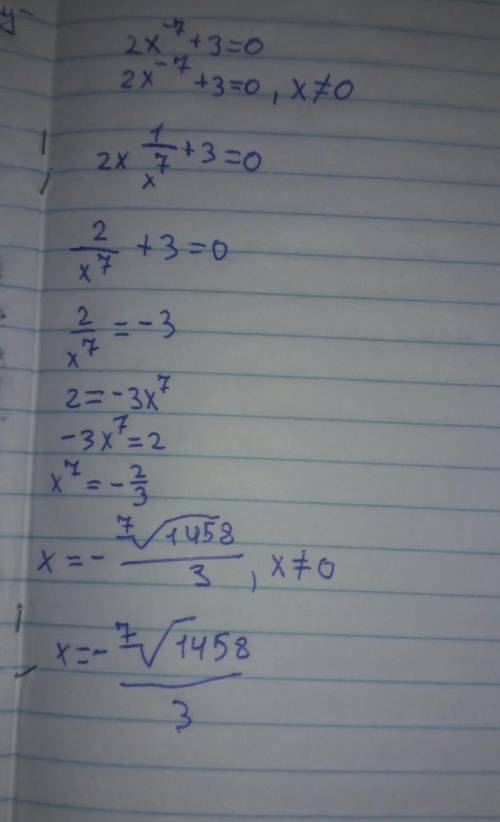 y-
2x⁻⁷+3=0
2x⁻⁷+3=0, x≠0
2x 1/x⁷+3=0
2/x⁷ +3=0
2/x⁷ = -3
2=-3x⁷
-3x⁷=2
x⁷=-2/3
x=- ⁷√1458/3, x≠0
x=- ⁷√1458/3